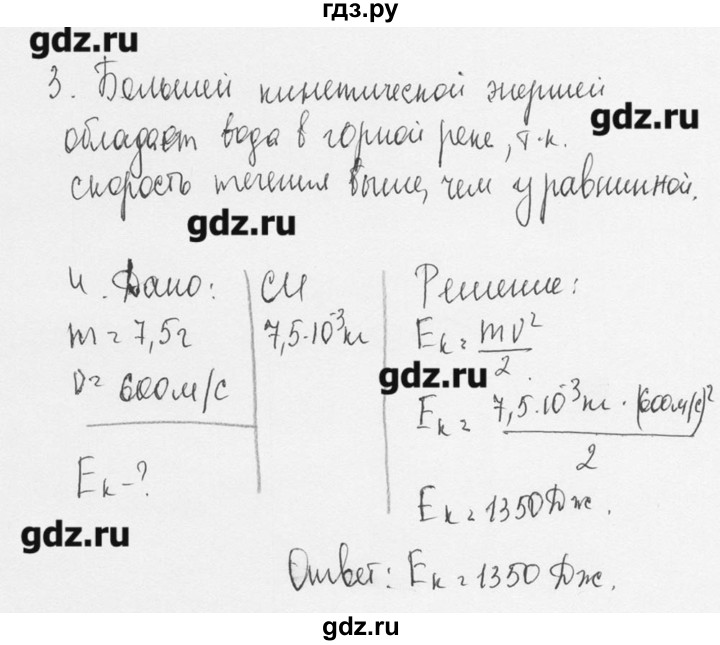 гдз.ру
gdz.ru
3. Большей кинетической энергией
gdz.ru
обладает вода в горной реке, т.к.
скорость течения выше, чем у равнинной.
gdz.ru
4. Дано:
m = 7,5г
v = 600м/с
Eк - ?
СИ
7,5·10⁻³кг
Решение:
Eк = mv²/2
gdz.ru
Eк = 7,5·10⁻³кг · (600м/с)²/2
Eк = 1350Дж.
gdz.ru
Ответ: Eк = 1350 Дж.
gdz.ru